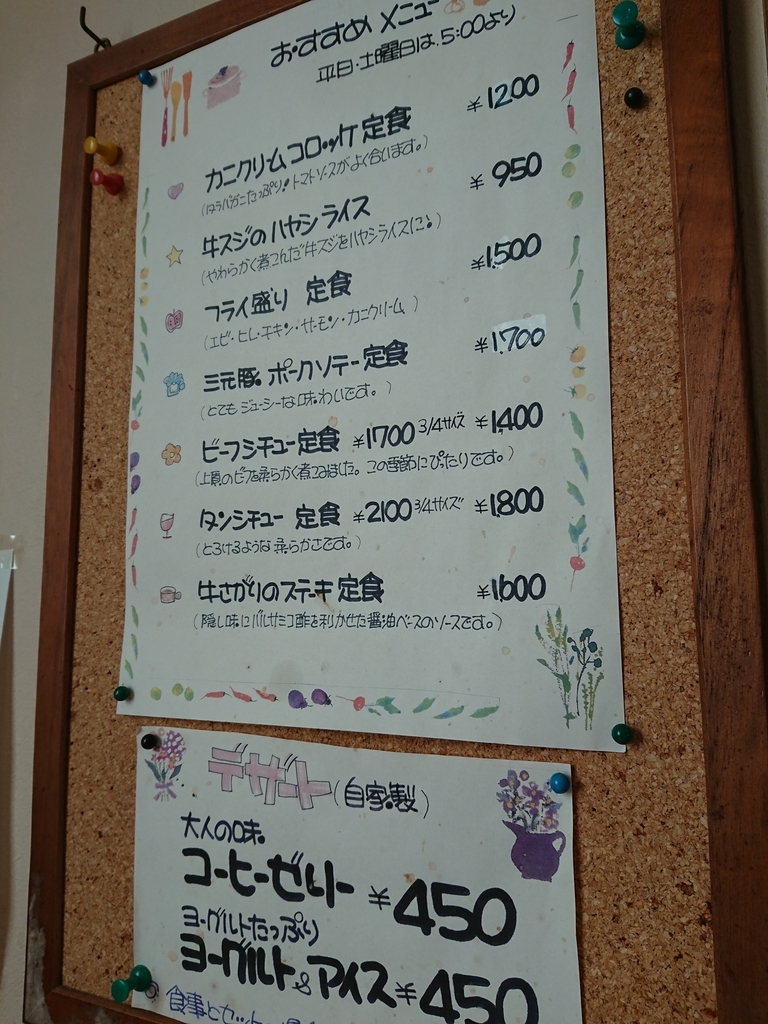 おすすめメニュー
平日・土曜日は、5:00より
カニクリームコロッケ定食 ¥1200
(タラバガニたっぷり!トマトソースがよく合います。)
牛スジのハヤシライス ¥950
(やわらかく煮こんだ牛スジをハヤシライスに!)
フライ盛り 定食 ¥1,500
(エビ・ヒレ・チキン・サーモン・カニクリーム)
三元豚 ポークソテー定食 ¥1,700
(とてもジューシーな味わいです。)
ビーフシチュー定食 ¥1700 3/4サイズ ¥1400
(上質のビーフを柔らかく煮こみました。この季節にぴったりです。)
タンシチュー 定食 ¥2100 3/4サイズ ¥1,800
(とろけるような柔らかさです。)
牛さがりのステーキ定食 ¥1,600
(隠し味にバルサミコ酢を利かせた醤油ベースのソースです。)
デザート(自家製)
大人の味。
コーヒーゼリー ¥450
ヨーグルトたっぷり
ヨーグルト&アイス ¥450
食事とセット